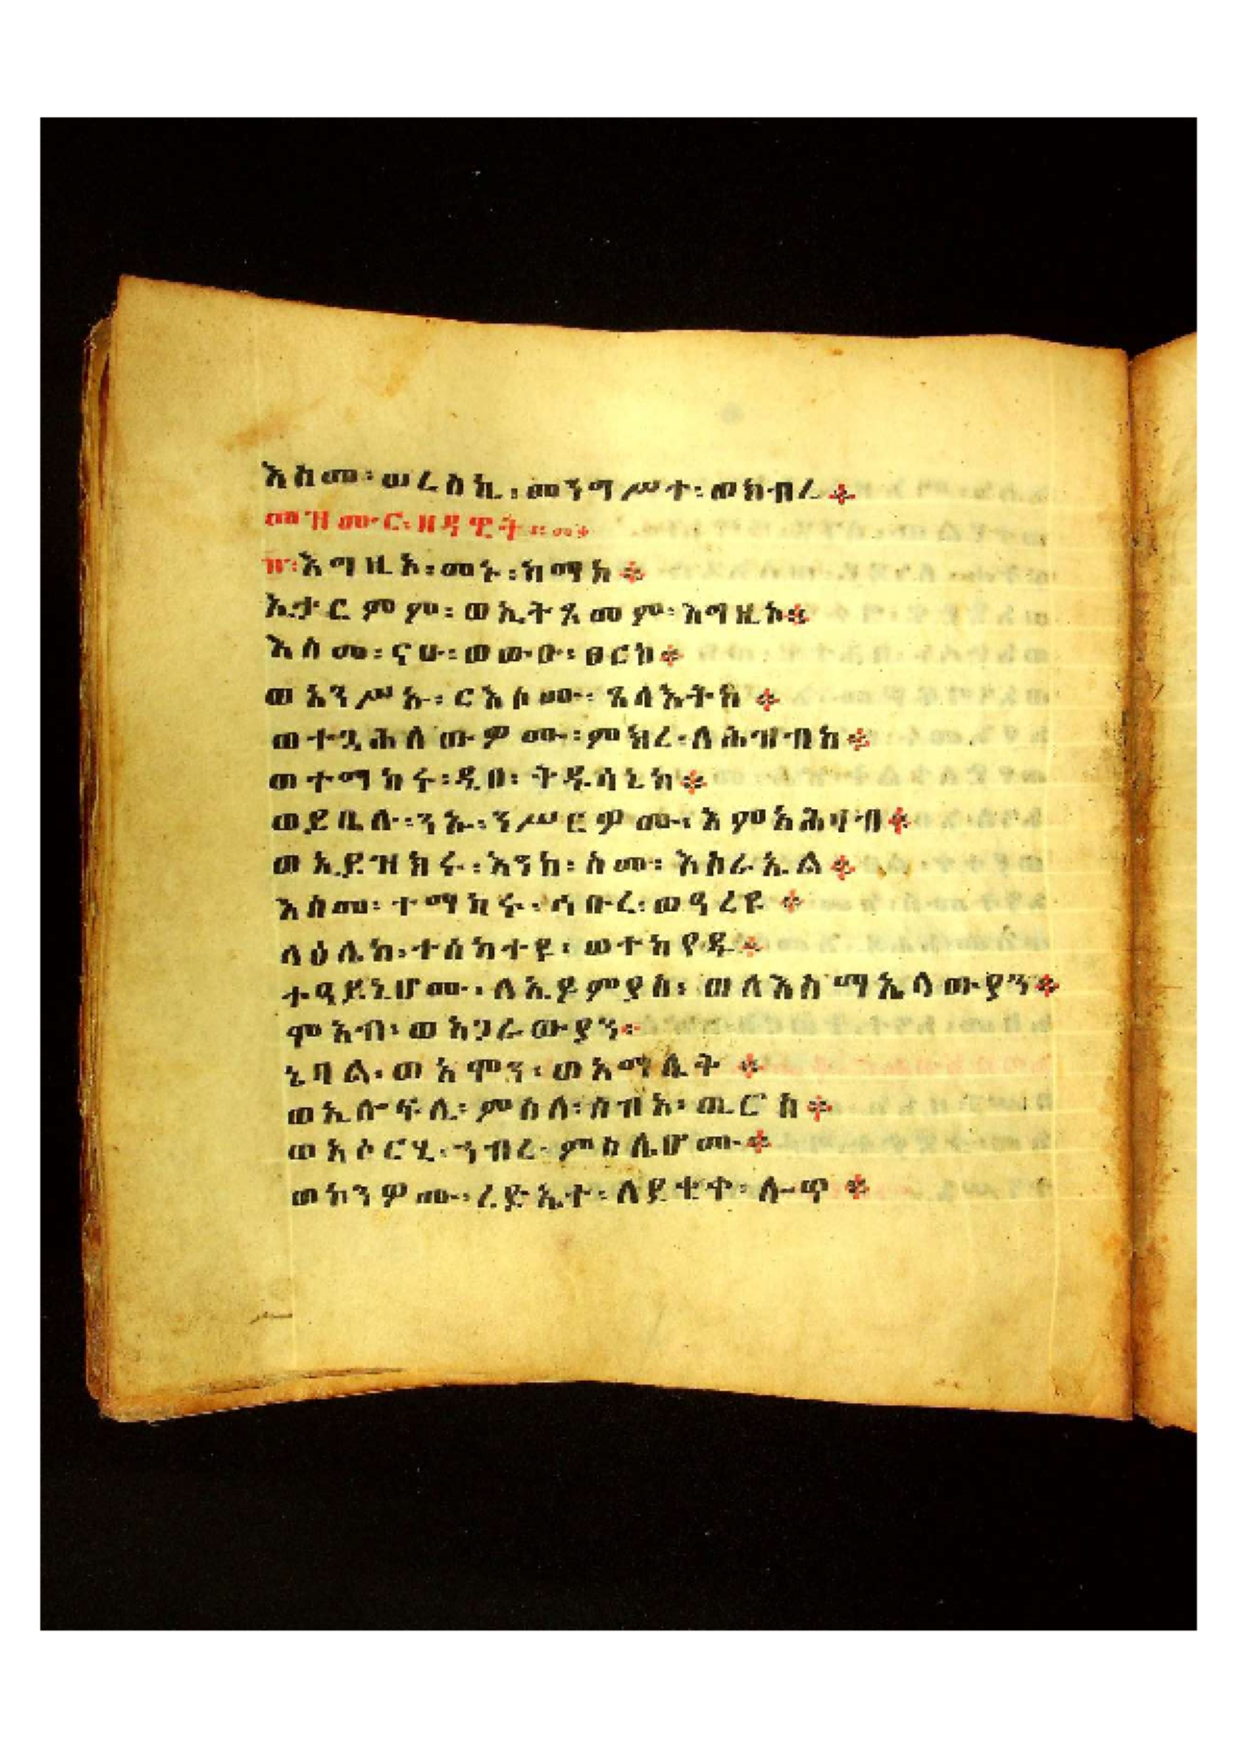 እስመ፡ ወረስኪ፡ መንግሥተ፡ ወክብረ፨
መዝሙር፡ ዘዳዊት፡
፹፪፡ እግዚኦ፡ መኑ፡ ከማከ፨
ኢታርምም፡ ወኢትጸመም፡ እግዚኦ፨
እስመ፡ ናሁ፡ ወውዑ፡ ፀርከ፨
ወአንሥኡ፡ ርእሶሙ፡ ጸላእትከ፨
ወተጓሕለውዎሙ፡ ምክረ፡ ለሕዝብከ፨
ወተማከሩ፡ ዲበ፡ ቅዱሳኒከ፨
ወይቤሉ፡ ንኡ፡ ንሥርዎሙ፡ እምአሕዛብ፨
ወኢይዝክሩ፡ እንከ፡ ስመ፡ እስራኤል፨
እስመ፡ ተማከሩ፡ ኅቡረ፡ ወዓረዩ፨
ላዕሌከ፡ ተሰክተዩ፡ ወተከየዱ፨
ተዓይኒሆሙ፡ ለኢዶምያስ፡ ወለእስማኤላውያን፨
ሞአብ፡ ወአጋራውያን፡
ኔባል፡ ወአሞን፡ ወአማሌቅ፨
ወኢሎፍሊ፡ ምስለ፡ ሰብአ፡ ጢሮስ፨
ወአሶርሂ፡ ኀብረ፡ ምስሌሆሙ፨
ወኮንዎሙ፡ ረድኤተ፡ ለደቂቀ፡ ሎጥ፨